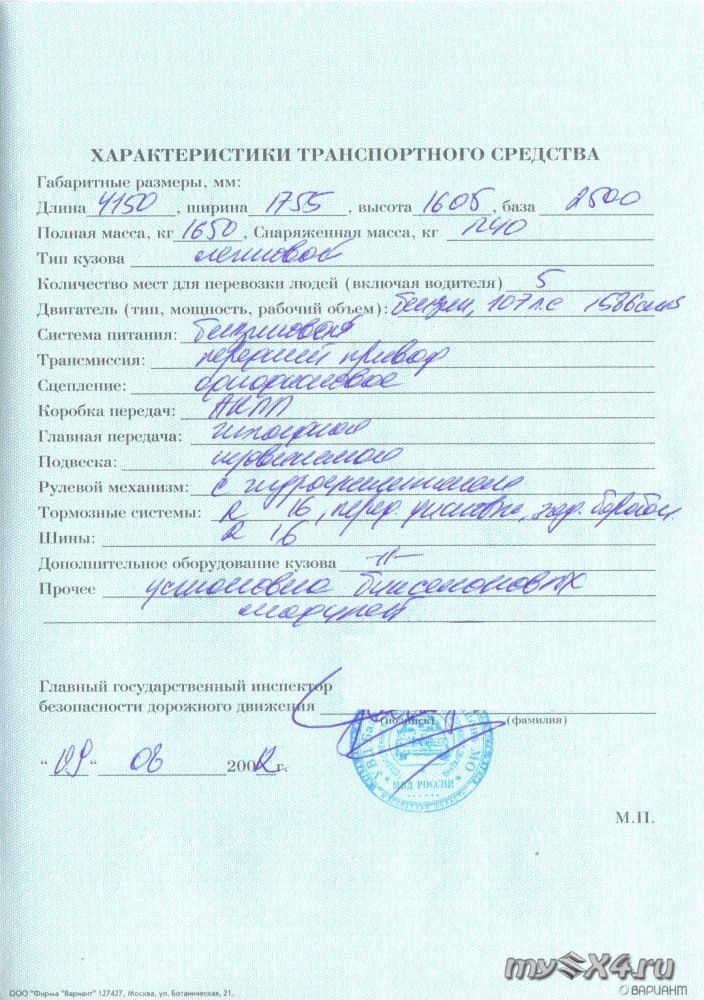 ХАРАКТЕРИСТИКИ ТРАНСПОРТНОГО СРЕДСТВА
Габаритные размеры, мм:
Длина 4150, ширина 1755, высота 1605, база 2500
Полная масса, кг 1650, Снаряженная масса, кг 1240
Тип кузова легковой
Количество мест для перевозки людей (включая водителя) 5
Двигатель (тип, мощность, рабочий объем): бензин, 107 л.с 1586 см3
Система питания:
Трансмиссия: передний привод
Сцепление:
Коробка передач: АКПП
Главная передача:
Подвеска:
Рулевой механизм: с гидроусилителем
Тормозные системы: R 16, перед. дисковые, зад. бараban
Шины: R 16
Дополнительное оборудование кузова -//-
Прочее установка биксеноновых
модулей
Главный государственный инспектор
безопасности дорожного движения
(подпись) (фамилия)
" 09 " 08 200 г.
МВД РОССИИ
М.П.
ООО "Фирма "Вариант" 127427, Москва, ул. Ботаническая, 21.
mySX4.ru
ВАРИАНТ